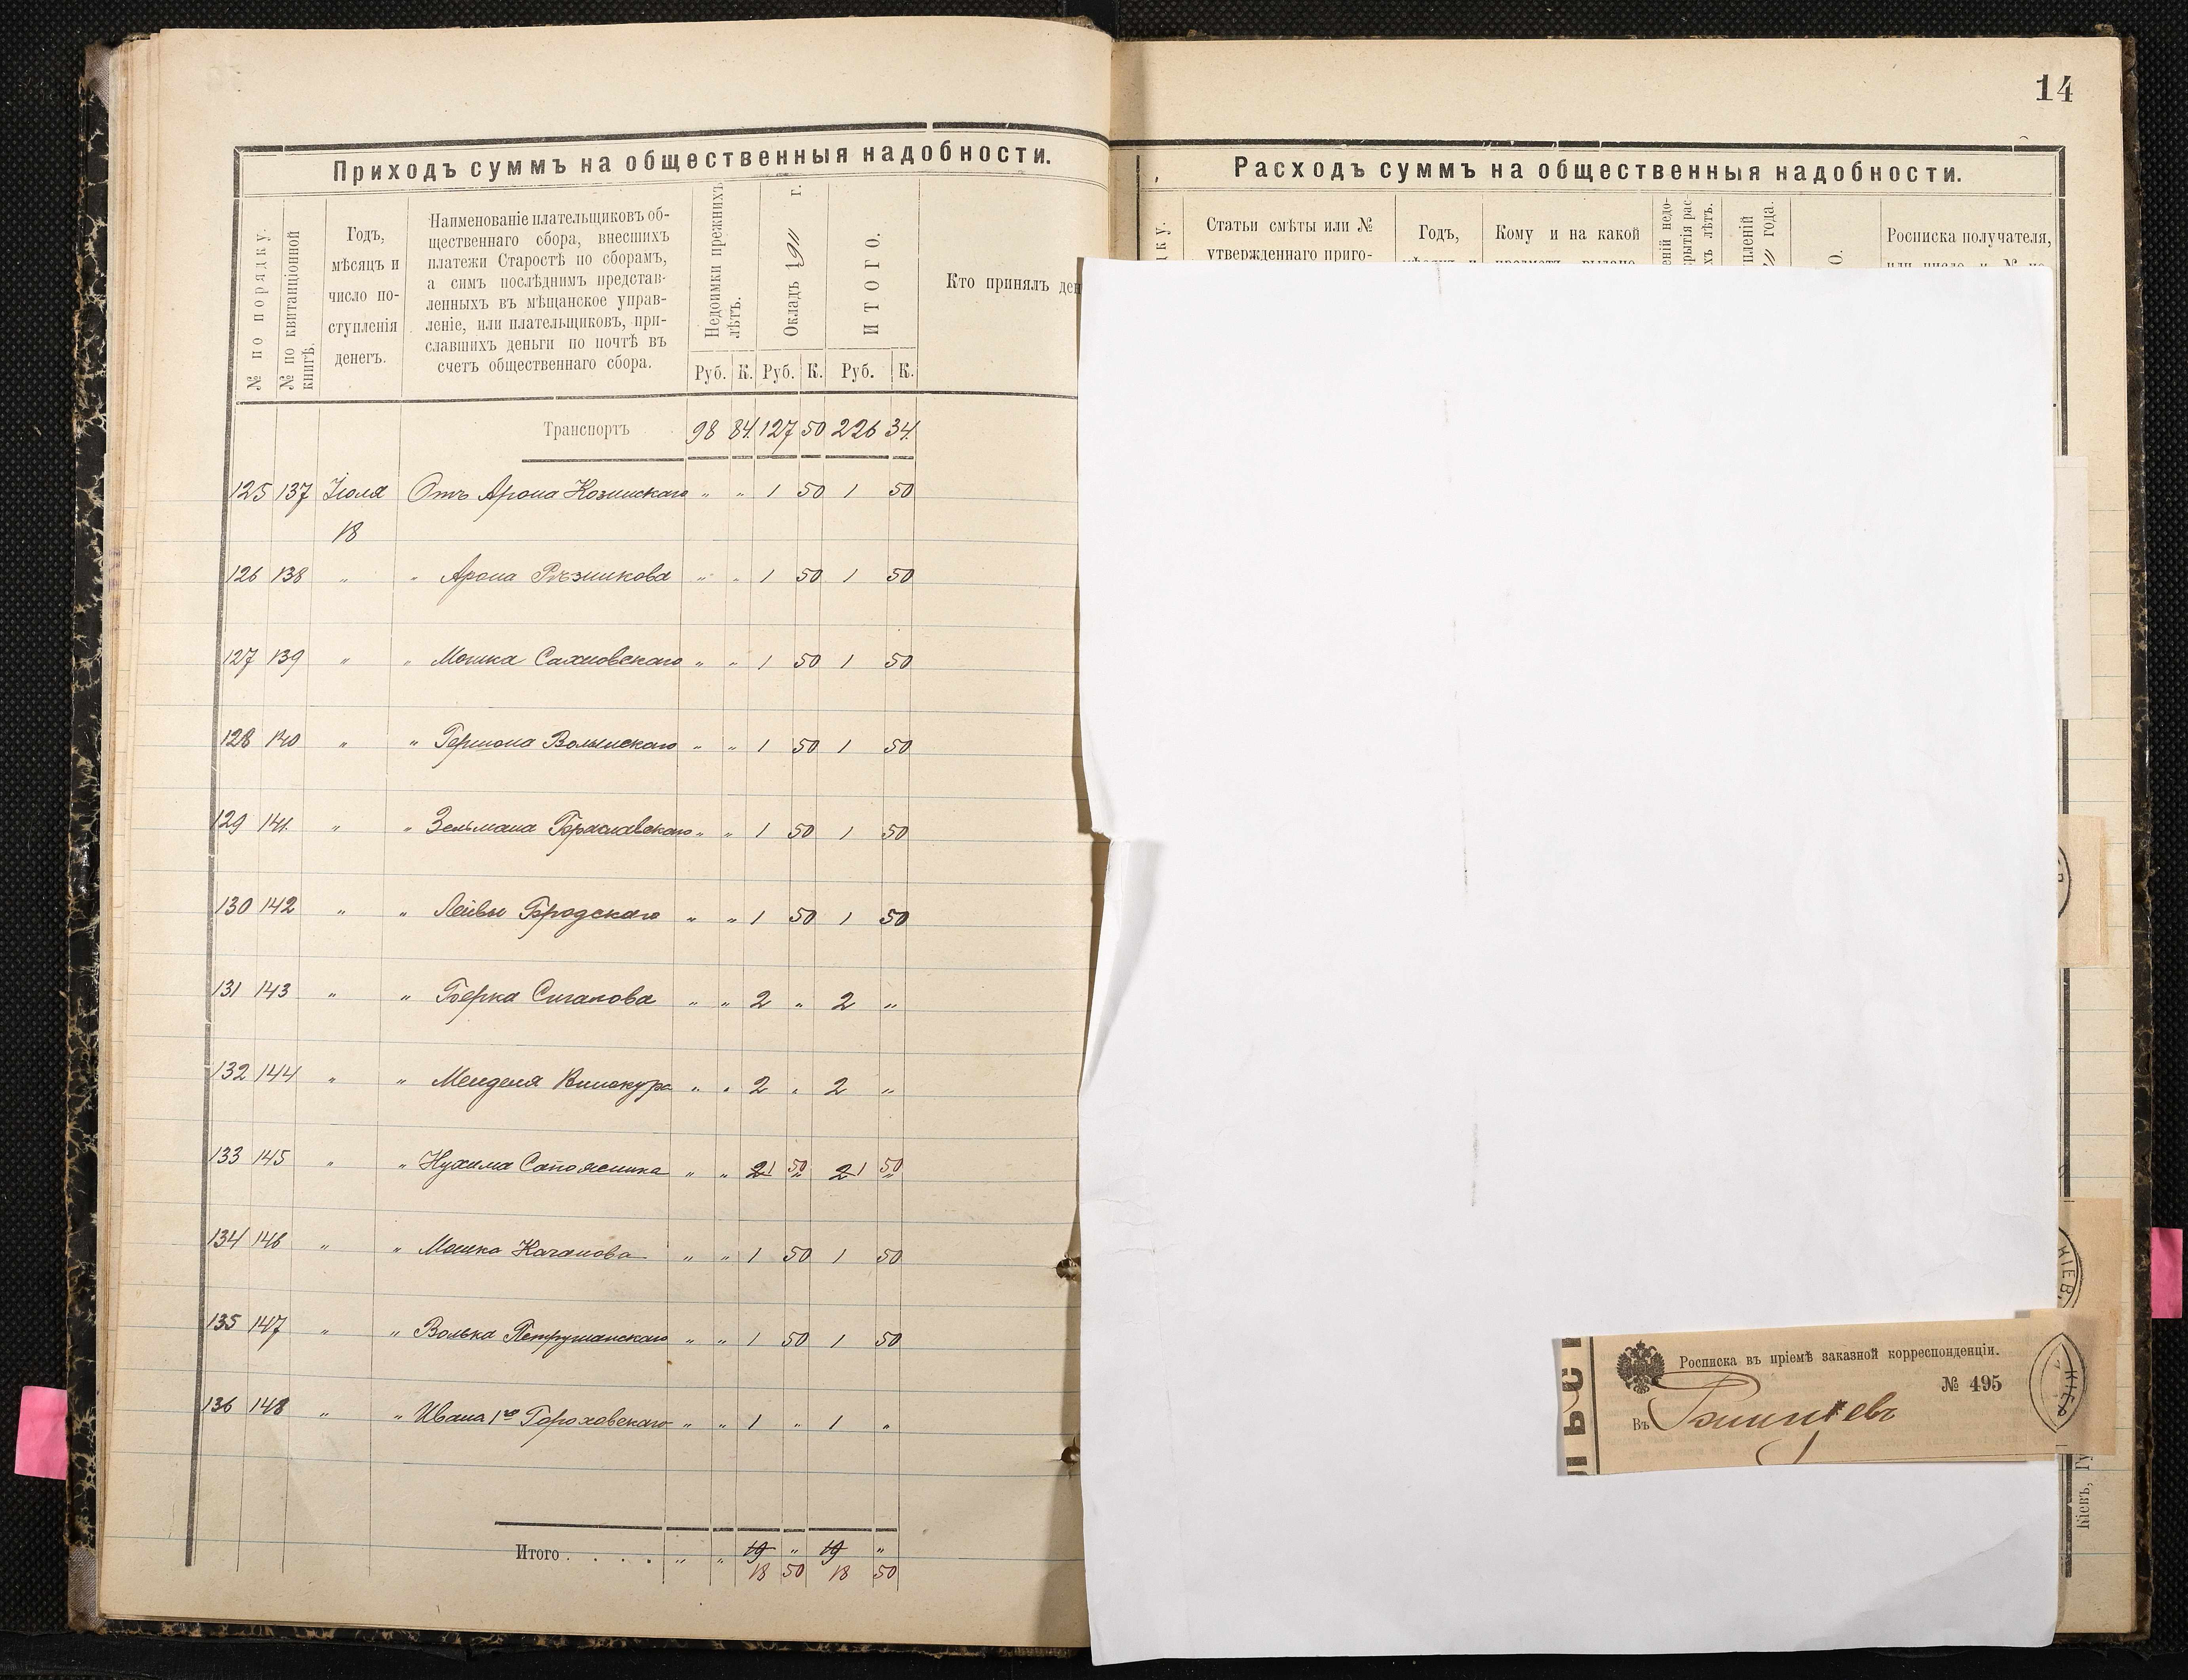 14
Приходъ суммъ на общественныя надобности.
№ по порядку.
№ по квитанціонной
книгѣ.
Годъ,
мѣсяцъ и
число по-
ступленія
денегъ.
Наименованіе плательщиковъ об-
щественнаго сбора, внесшихъ
платежи Старостѣ по сборамъ,
а симъ послѣднимъ представ-
ленныхъ въ мѣщанское управ-
леніе, или плательщиковъ, при-
славшихъ деньги по почтѣ въ
счетъ общественнаго сбора.
Недоимки прежнихъ
лѣтъ.
Окладъ 1911 г.
ИТОГО.
Руб. К. Руб. К. Руб. К.
Кто принялъ ден
Транспортъ 98 84 127 50 226 34
125 137 Іюля Отъ Арона Козинскаго " " 1 50 1 50
18
126 138 " " Арона Рѣзникова " " 1 50 1 50
127 139 " " Мошка Сахновскаго " " 1 50 1 50
128 140 " " Гершона Волынскаго " " 1 50 1 50
129 141 " " Зельмана Бораславскаго " " 1 50 1 50
130 142 " " Лейвы Бродскаго " " 1 50 1 50
131 143 " " Берка Сигалова " " 2 " 2 "
132 144 " " Менделя Винокура " " 2 " 2 "
133 145 " " Нухима Сапожника " " 2 1 50 " 2 1 50 "
134 146 " " Мошка Каганова " " 1 50 1 50
135 147 " " Волька Петрушанскаго " " 1 50 1 50
136 148 " " Ивана 1го Гороховскаго " " 1 " 1 "
Итого . . . . " " 19 " 19 "
18 50 18 50
Расходъ суммъ на общественныя надобности.
Статьи смѣты или №
утвержденнаго приго-
Годъ,
Кому и на какой
лѣтъ.
года.
Росписка получателя,
Росписка въ пріемѣ заказной корреспонденціи.
№ 495
Въ
КІЕВ
Кіевъ,